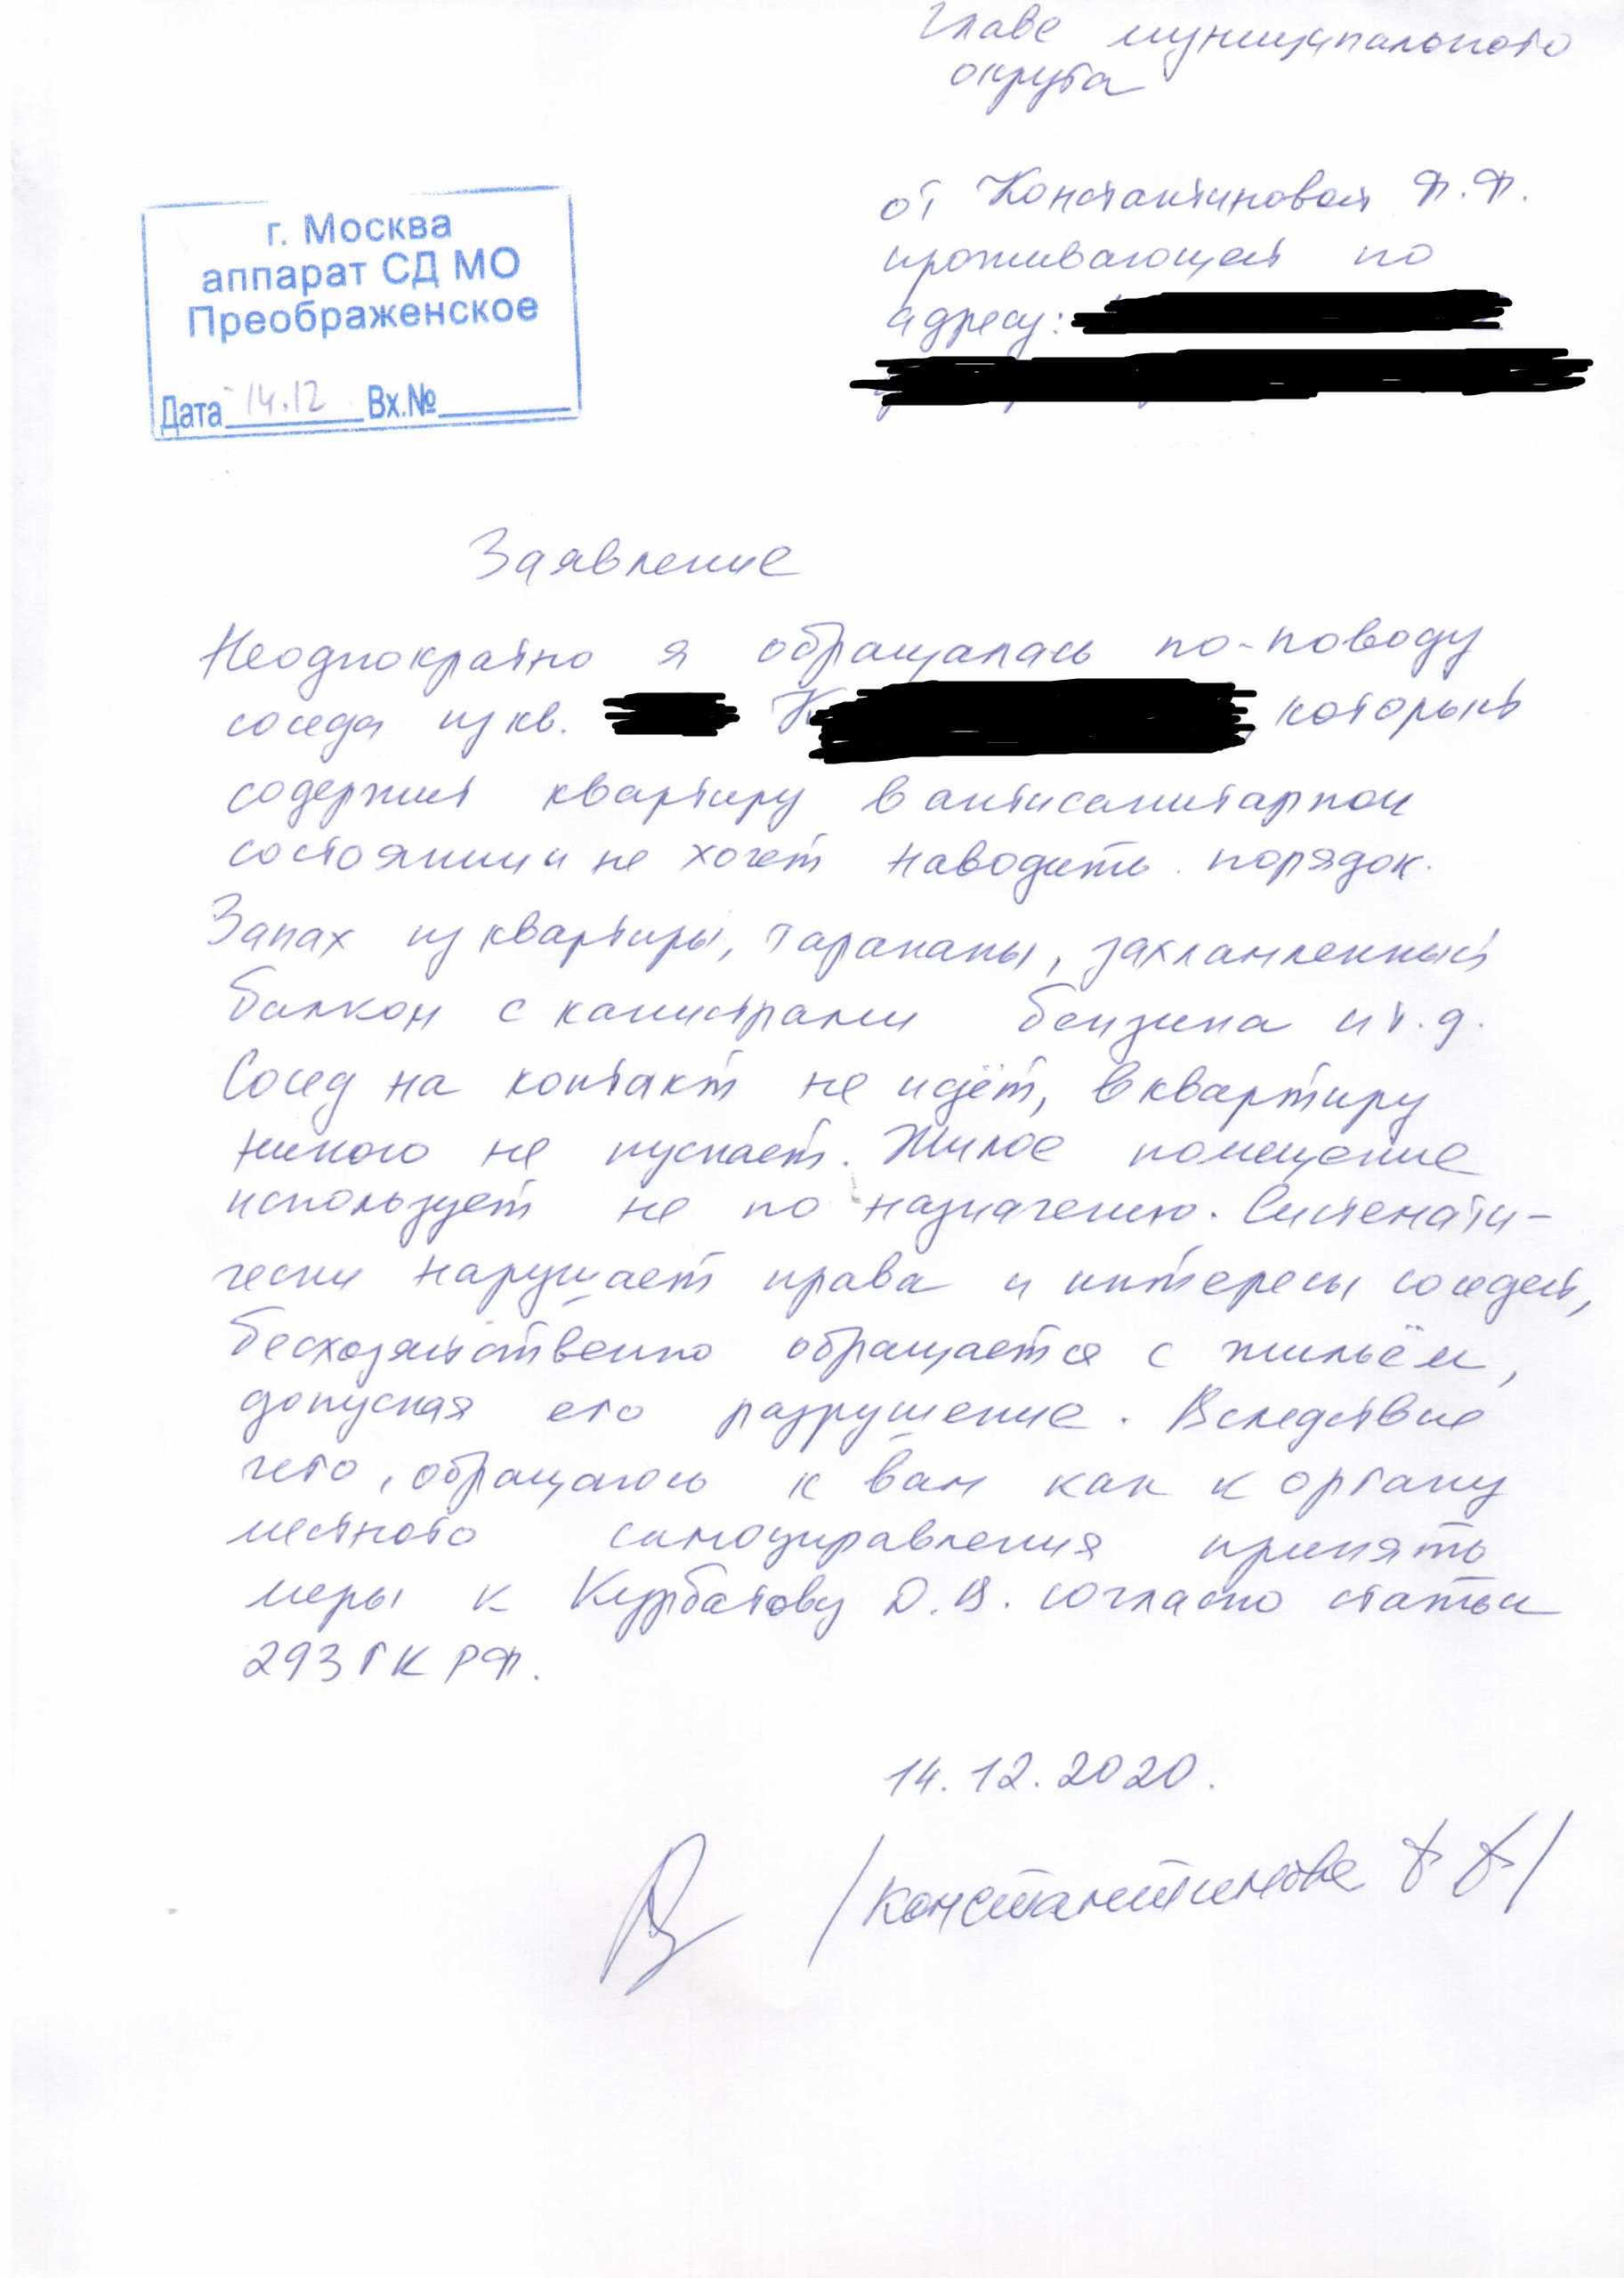 Главе муниципального
округа
г. Москва
аппарат СД МО
Преображенское
Дата 14.12 Вх.№
от Константиновой Ф.Ф.
проживающей по
адресу:
Заявление
Неоднократно я обращалась по-поводу
соседа из кв. К , который
содержит квартиру в антисанитарном
состоянии и не хочет наводить порядок.
Запах из квартиры, тараканы, захламленный
балкон с канистрами бензина и т.д.
Сосед на контакт не идёт, в квартиру
никого не пускает. Жилое помещение
использует не по назначению. Системати-
чески нарушает права и интересы соседей,
бесхозяйственно обращается с жильём,
допуская его разрушение. Вследствие
чего, обращаюсь к вам как к органу
местного самоуправления принять
меры к Курбатову Д.В. согласно статьи
293 ГК РФ.
14.12.2020.
/Константинова Ф Ф/